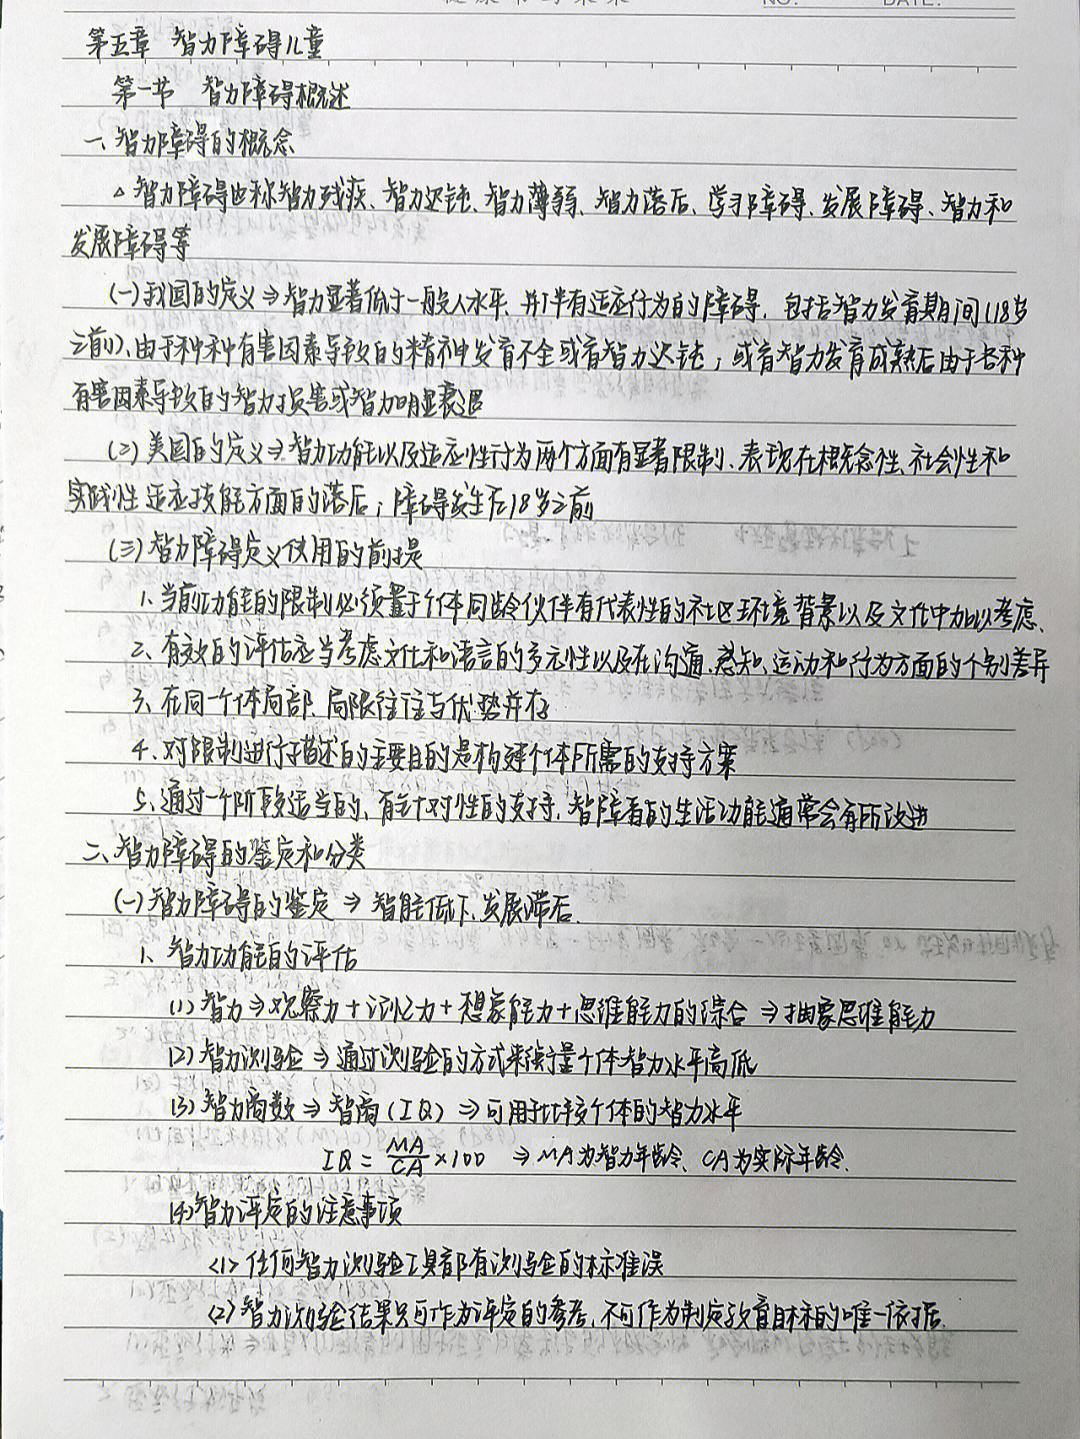 NO.
DATE.
第五章 智力障碍儿童
第一节 智力障碍概述
一、智力障碍的概念
△智力障碍也称智力残疾、智力迟钝、智力薄弱、智力落后、学习障碍、发展障碍、智力和
发展障碍等
(一)我国的定义⇒智力显著低于一般人水平、并伴有适应行为的障碍，包括智力发育期间(18岁
之前)、由于种种有害因素导致的精神发育不全或者智力迟钝；或者智力发育成熟后由于各种
有害因素导致的智力损害或智力明显衰退
(二)美国的定义⇒智力功能以及适应性行为两个方面有显著限制、表现在概念性、社会性和
实践性适应技能方面的落后；障碍发生在18岁之前
(三)智力障碍定义使用的前提
1、当前功能的限制必须置于个体同龄伙伴有代表性的社区环境背景以及文化中加以考虑、
2、有效的评估应当考虑文化和语言的多元性以及在沟通、感知、运动和行为方面的个别差异
3、在同一个体局部、局限往往与优势并存
4、对限制进行描述的主要目的是构建个体所需的支持方案
5、通过一个阶段适当的、有针对性的支持，智障者的生活功能通常会有所改进
二、智力障碍的鉴定和分类
(一)智力障碍的鉴定⇒智能低下、发展滞后.
1、智力功能的评估
(1)智力⇒观察力+记忆力+想象能力+思维能力的综合⇒抽象思维能力
(2)智力测验⇒通过测验的方式来衡量个体智力水平高低
(3)智力商数⇒智商(IQ)⇒可用于比较个体的智力水平
IQ=MA/CA×100 ⇒MA为智力年龄、CA为实际年龄.
(4)智力评定的注意事项
<1>任何智力测验工具都有测验的标准误
<2>智力测验结果只可作为评定的参考，不可作为制定教育目标的唯一依据.